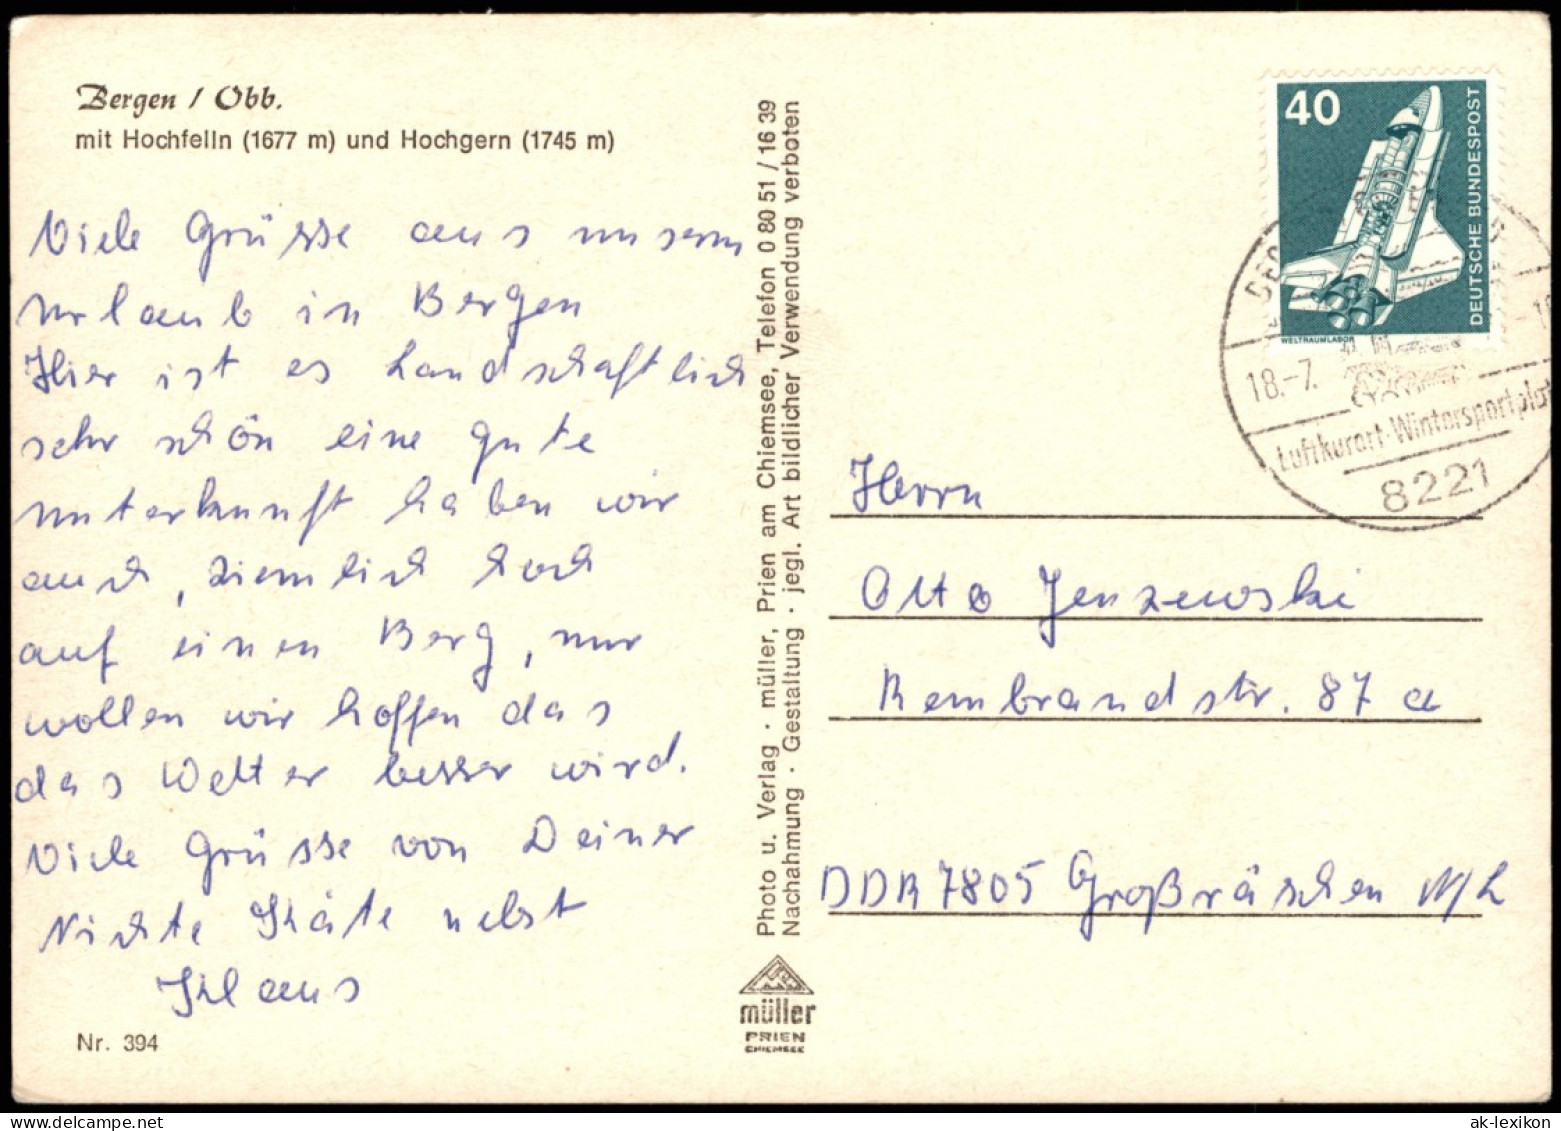 Bergen / Obb.
mit Hochfelln (1677 m) und Hochgern (1745 m)
Viele Grüsse aus unserm
Urlaub in Bergen
Hier ist es Landschaftlich
sehr schön eine gute
Unterkunft haben wir
auch, ziemlich hoch
auf einen Berg, nur
wollen wir hoffen das
das Wetter besser wird.
Viele Grüsse von Deiner
Nichte Käte nebst
Klaus
Nr. 394
Photo u. Verlag · müller, Prien am Chiemsee, Telefon 0 80 51 / 16 39
Nachahmung · Gestaltung · jegl. Art bildlicher Verwendung verboten
müller
PRIEN
CHIEMSEE
40
DEUTSCHE BUNDESPOST
WELTRAUMLABOR
18.-7.
Luftkurort-Wintersportplatz
8221
Herrn
Otto Jenzewski
Rembrandstr. 87 a
DDR 7805 Großräschen N/L
ak-lexikon